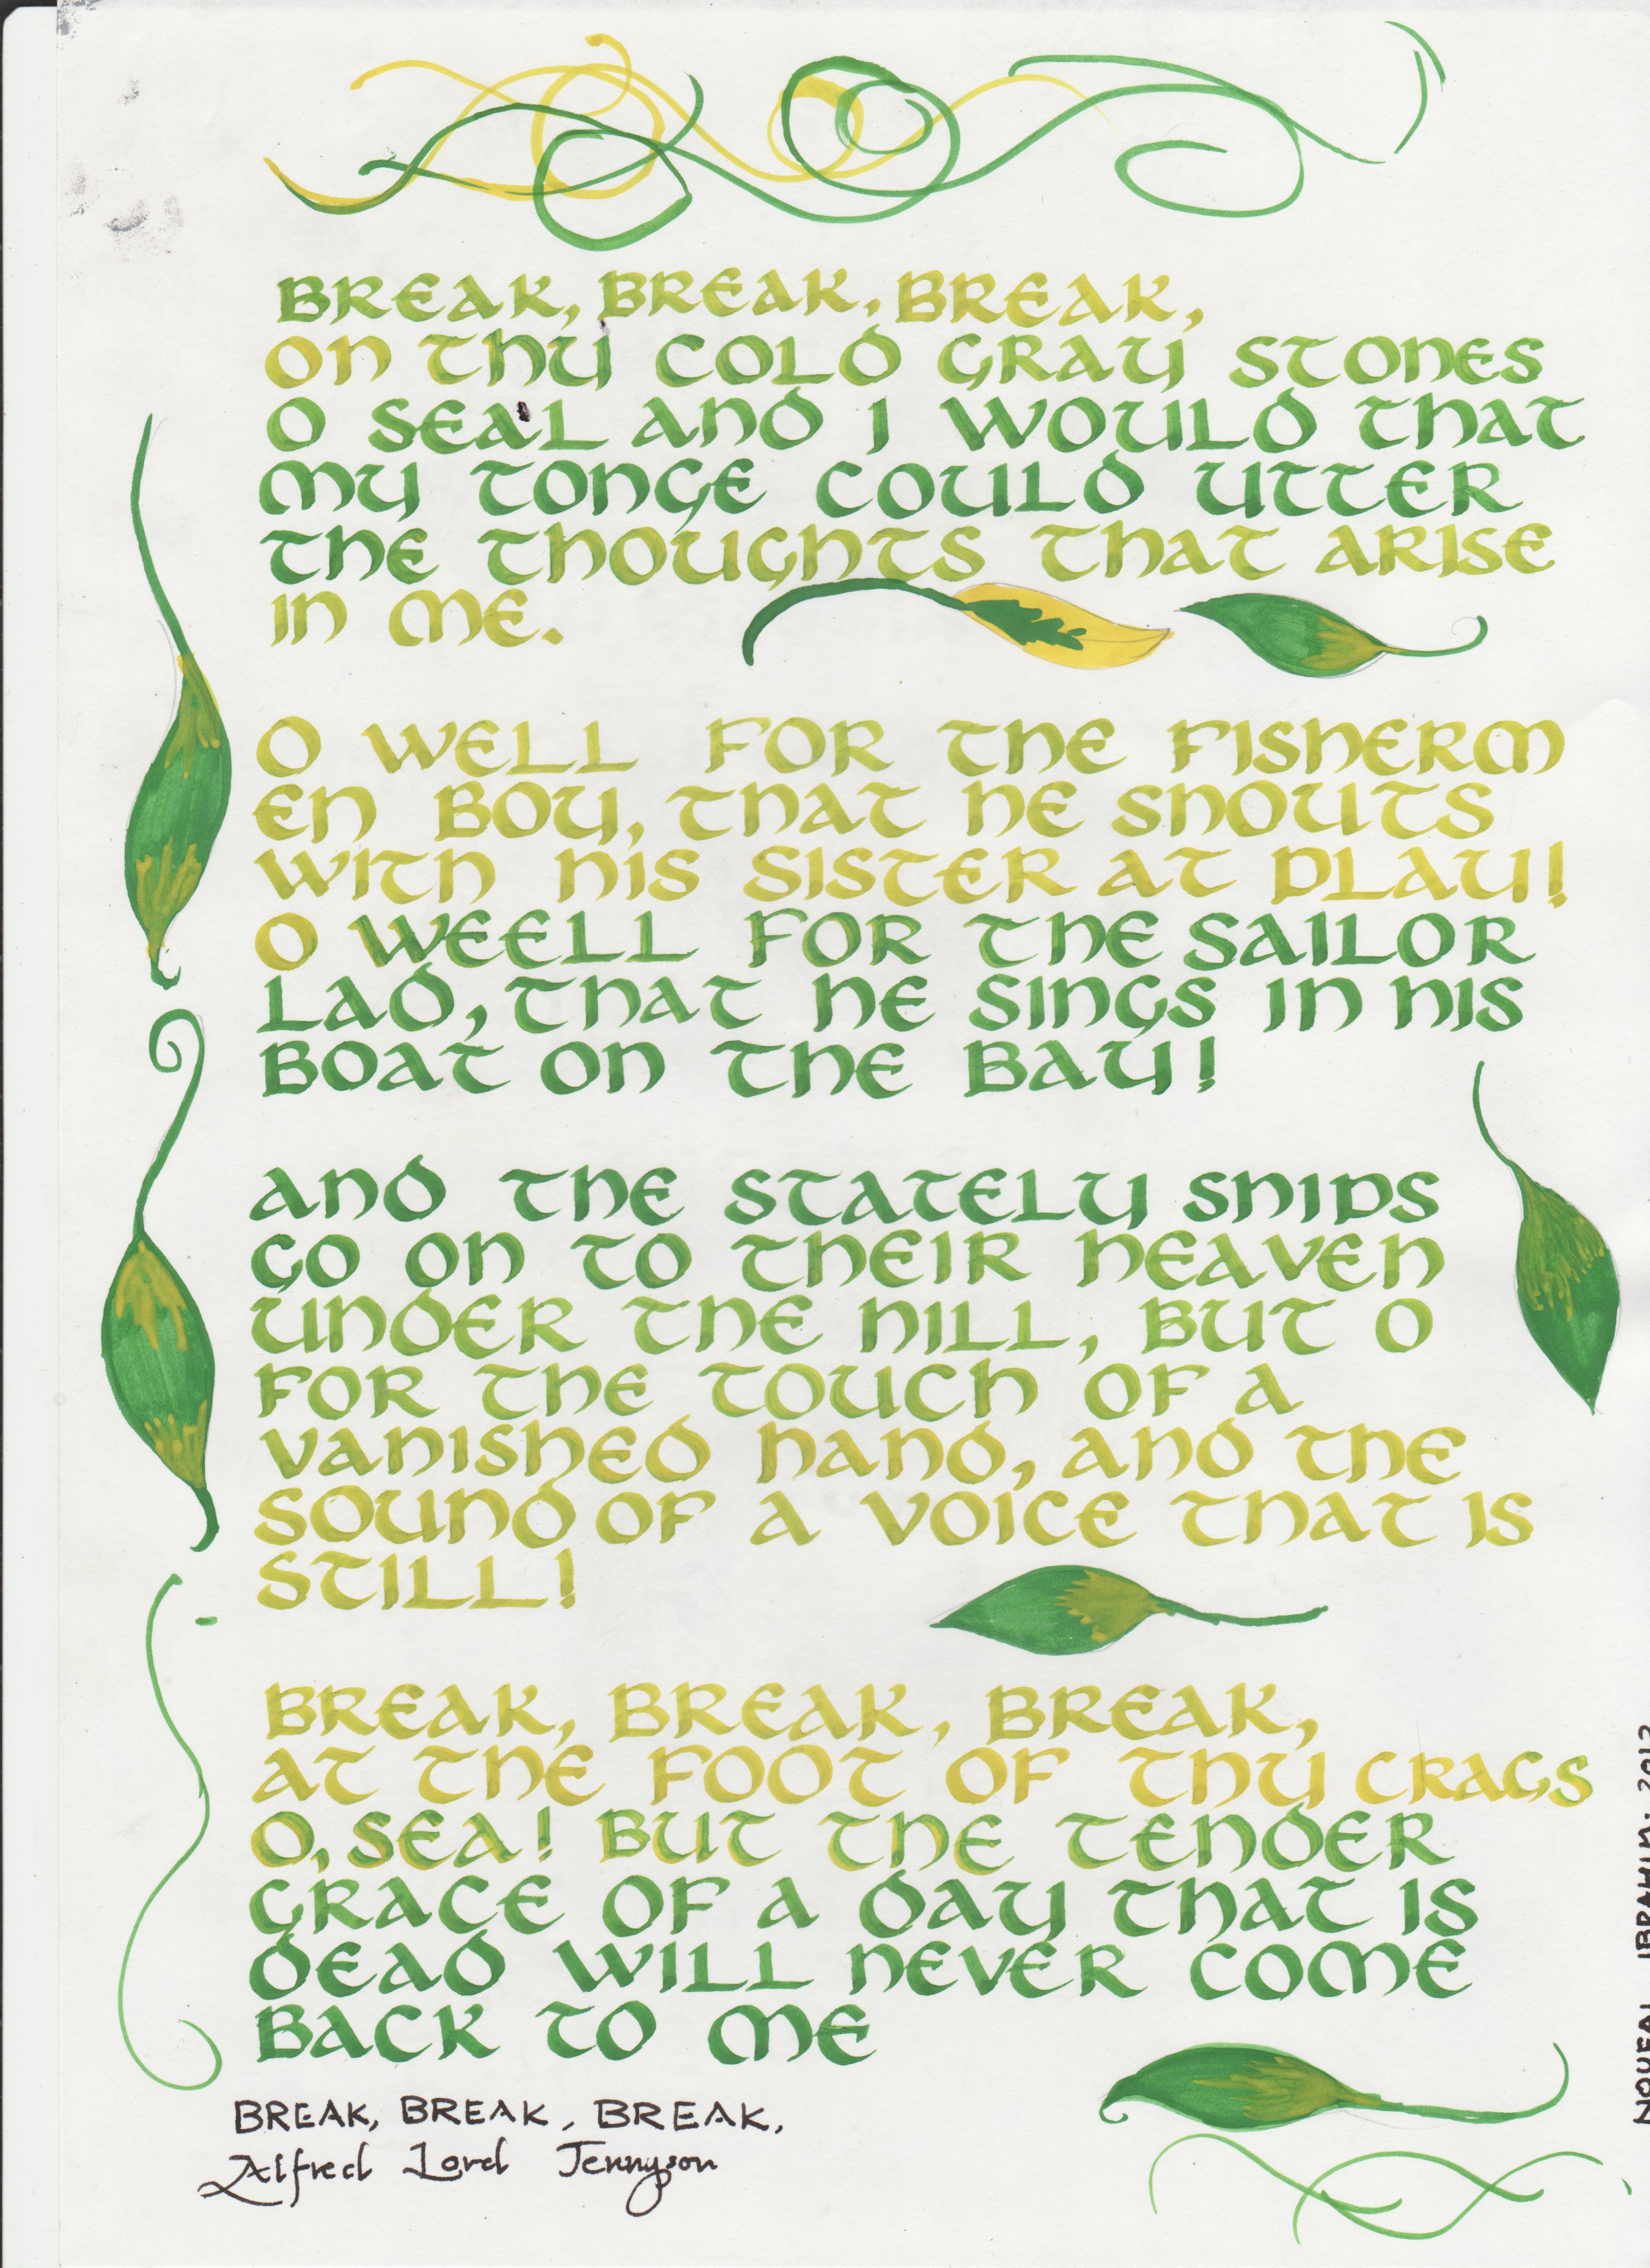 BREAK, BREAK, BREAK,
ON THY COLD GRAY STONES
O SEAL AND I WOULD THAT
MY TONGE COULD UTTER
THE THOUGHTS THAT ARISE
IN ME.
O WELL FOR THE FISHERM
EN BOY, THAT HE SHOUTS
WITH HIS SISTER AT PLAY!
O WEELL FOR THE SAILOR
LAD, THAT HE SINGS IN HIS
BOAT ON THE BAY!
AND THE STATELY SHIPS
GO ON TO THEIR HEAVEN
UNDER THE HILL, BUT O
FOR THE TOUCH OF A
VANISHED HAND, AND THE
SOUND OF A VOICE THAT IS
STILL!
BREAK, BREAK, BREAK,
AT THE FOOT OF THY CRAGS
O, SEA! BUT THE TENDER
GRACE OF A DAY THAT IS
DEAD WILL NEVER COME
BACK TO ME
BREAK, BREAK, BREAK.
Alfred Lord Tennyson
NOUFAL IBRAHIM. 2012